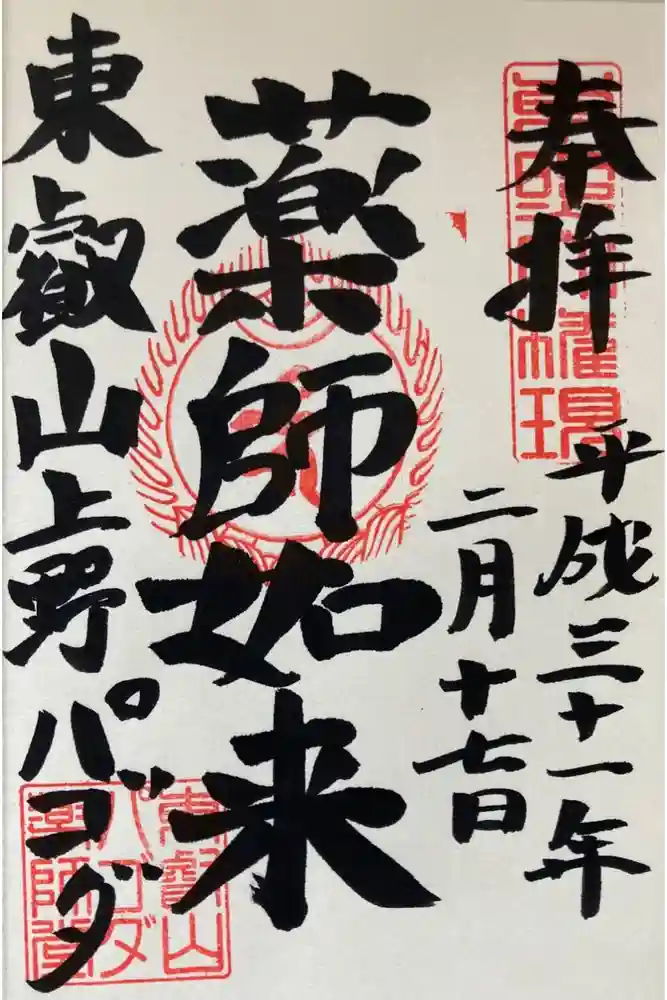 奉拝
平成三十一年
二月十七日
薬師如来
東叡山上野パゴダ
東叡山
パゴダ
薬師堂